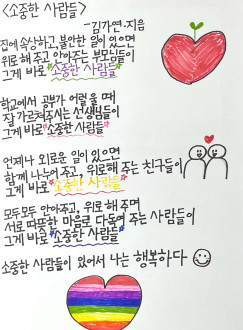 <소중한 사람들>
-김가연·지음
집에 속상하고, 불안한 일이 있으면
위로해 주고 안아주는 부모님들이
그게 바로 "소중한 사람들"
학교에서 공부가 어려울 때
잘 가르쳐주시는 선생님들이
그게 바로 "소중한 사람들"
언제나 외로운 일이 있으면
함께 나누어 주고, 위로해 주는 친구들이
그게 바로 "소중한 사람들"
모두모두 안아주고, 위로해 주며
서로 따뜻한 마음로 다독여 주는 사람들이
그게 바로 "소중한 사람들"
소중한 사람들이 있어서 나는 행복하다